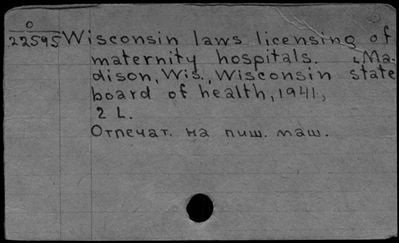 0
22595 Wisconsin laws licensing of
maternity hospitals. Ma-
dison, Wis., Wisconsin state
board of health, 1941,
2 L.
Отпечат. на пиш. маш.